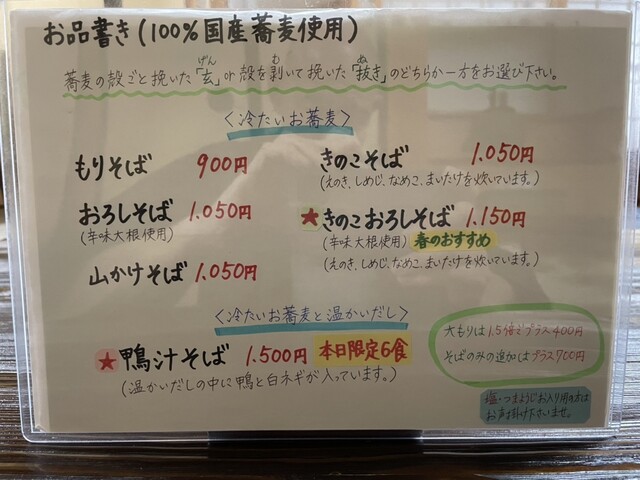 お品書き(100%国産蕎麦使用)
蕎麦の殻ごと挽いた「玄」or 殻を剥いて挽いた「抜き」のどちらか一方をお選び下さい。
げん
む
ぬ
〈冷たいお蕎麦〉
もりそば 900円
おろしそば 1.050円
(辛味大根使用)
山かけそば 1.050円
きのこそば 1.050円
(えのき、しめじ、なめこ、まいたけを炊いています。)
★きのこおろしそば 1.150円
(辛味大根使用) 春のおすすめ
(えのき、しめじ、なめこ、まいたけを炊いています。)
〈冷たいお蕎麦と温かいだし〉
★鴨汁そば 1.500円 本日限定6食
(温かいだしの中に鴨と白ネギが入っています。)
大もりは1.5倍でプラス400円
そばのみの追加はプラス700円
塩・つまようじお入り用の方は
お声掛け下さいませ。